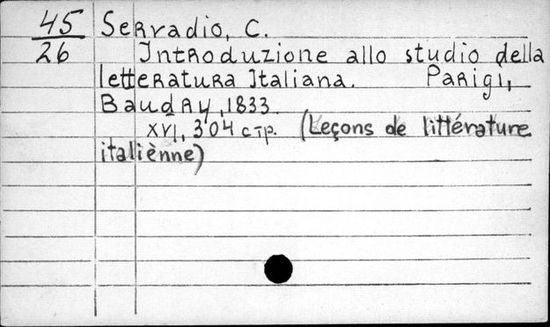 45 Servadio, C.
26 Introduzione allo studio della
letteratura Italiana. Parigi,
Baudry, 1833
XVI, 304 стр. (Leçons de littérature
italiènne)